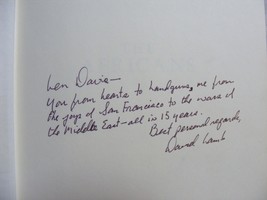 Len Davis—
You from hearts to handguns, me from
the joys of San Francisco to the wars of
the Middle East—all in 15 years.
Best personal regards,
David Lamb